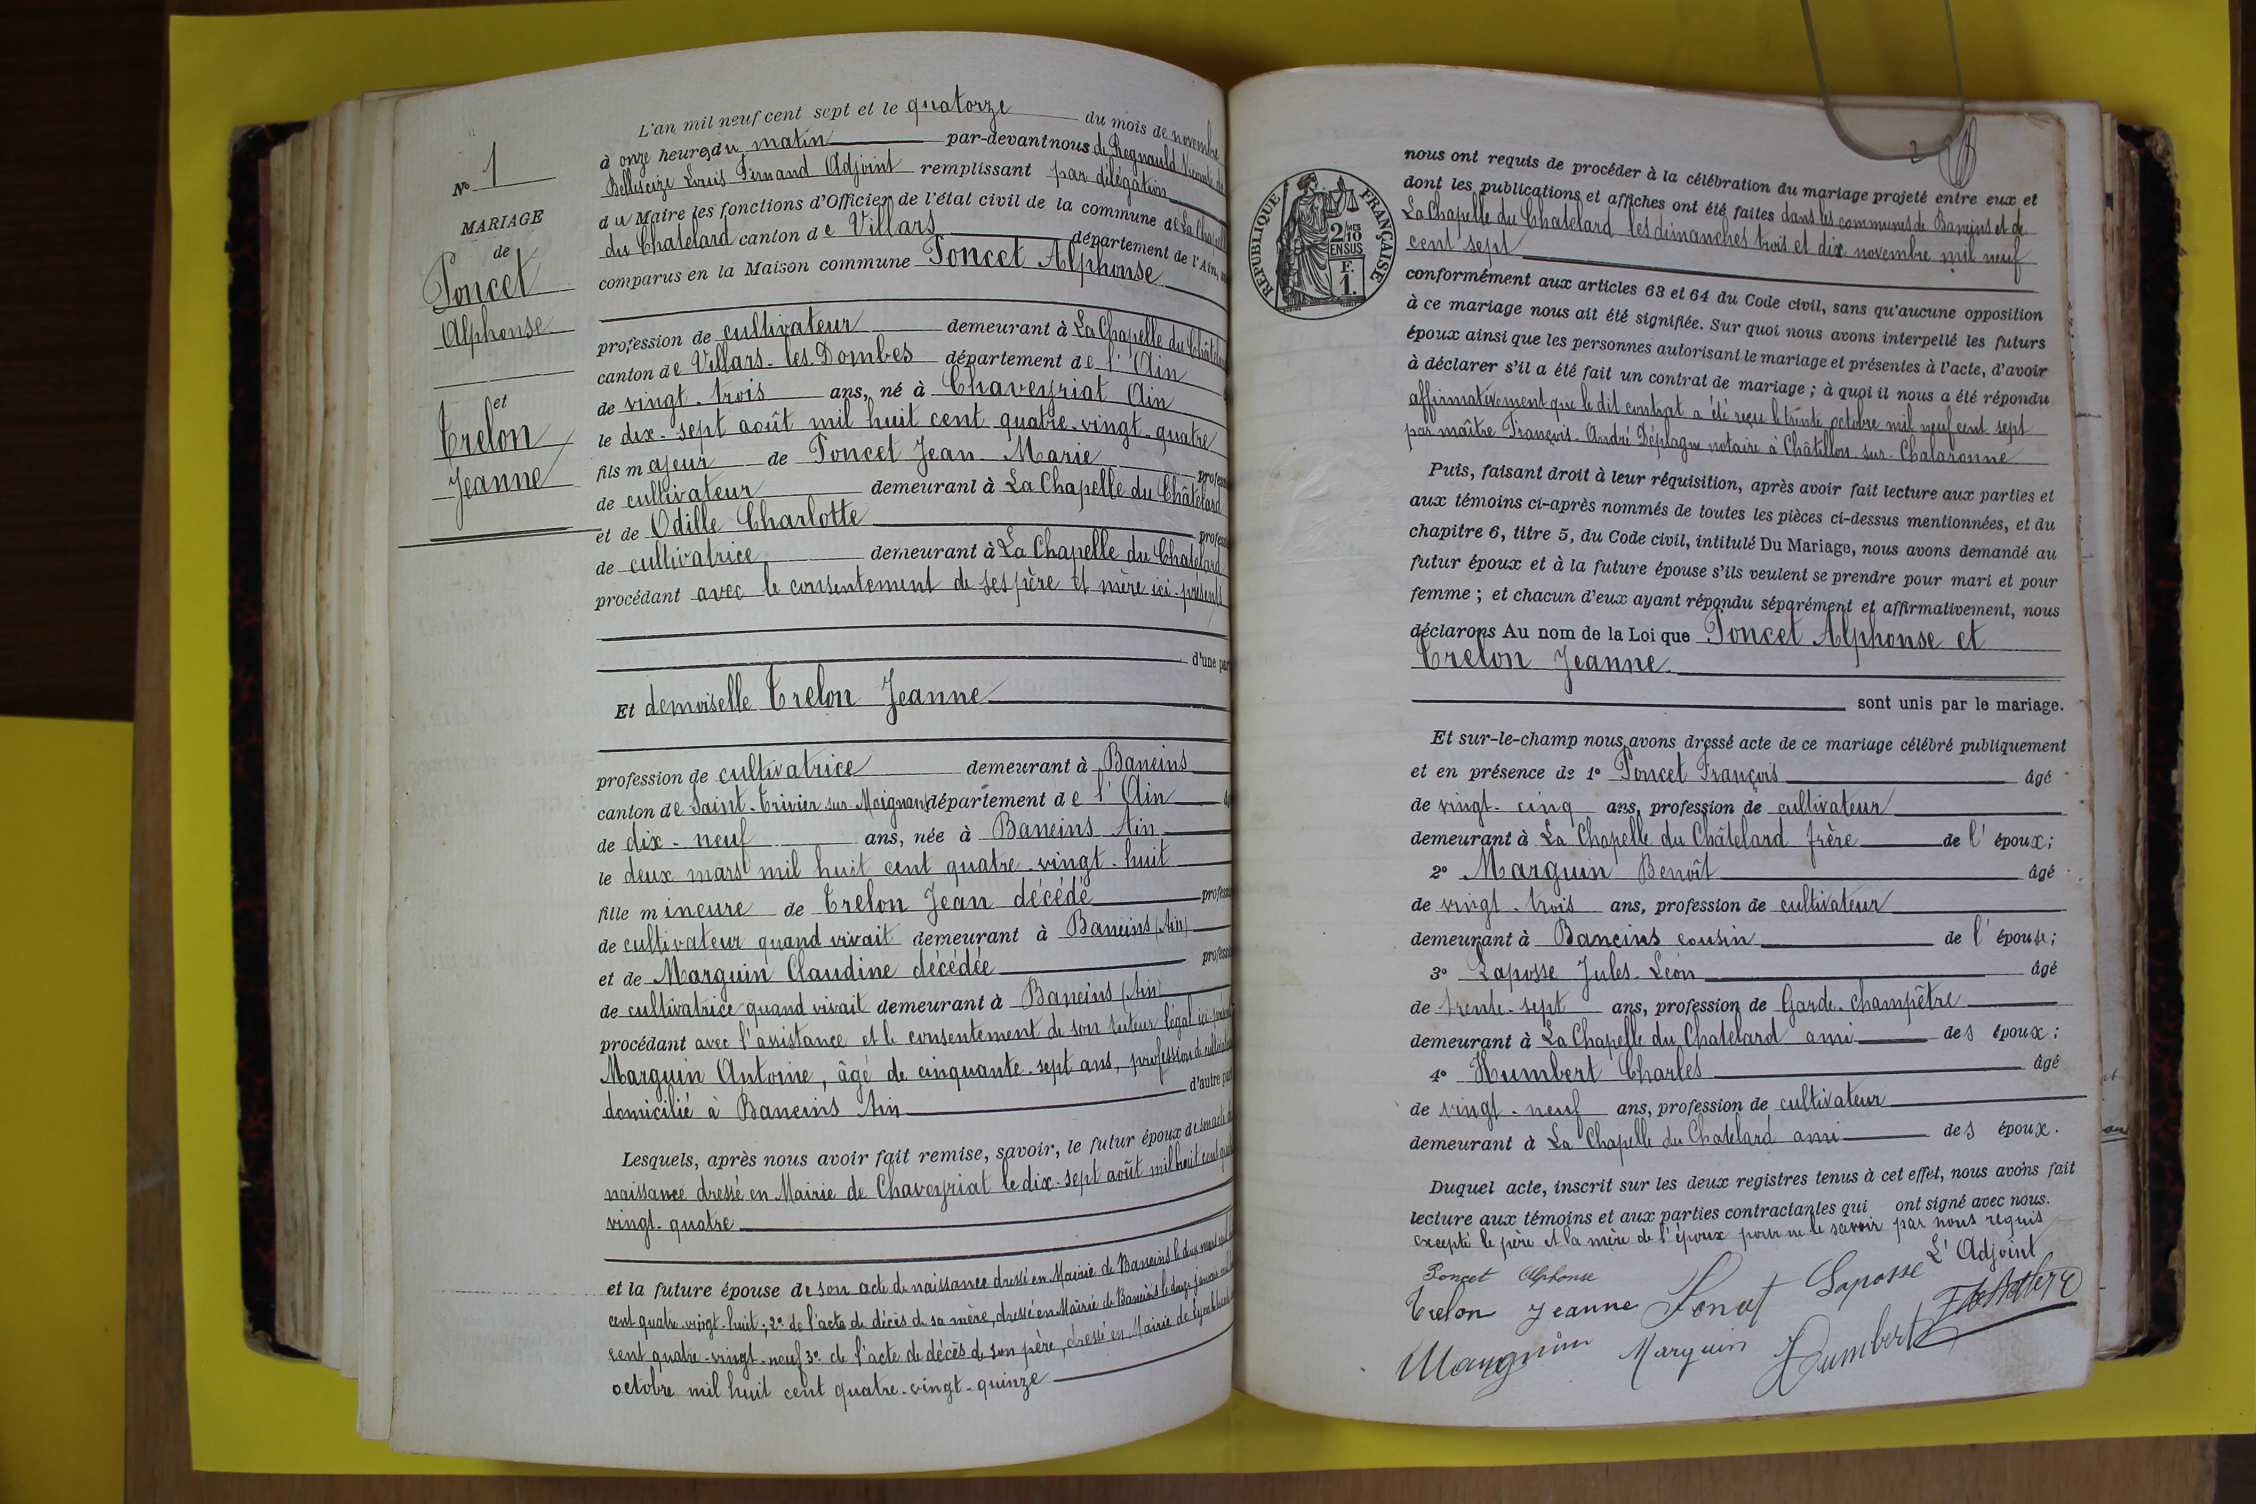 L'an mil neuf cent sept et le quatorze du mois de novembre
à onze heures du matin par-devant nous de Regnauld Vicomte de
Bellescize Louis Fernand Adjoint remplissant par délégation
du Maire les fonctions d'Officier de l'état civil de la commune de La Chapelle
du Chatelard canton de Villars département de l'Ain,
comparus en la Maison commune Poncet Alphonse
N° 1
MARIAGE
de
Poncet
Alphonse
et
Trelon
Jeanne
profession de cultivateur demeurant à La Chapelle du Châtelard
canton de Villars-les-Dombes département de l'Ain
de vingt-trois ans, né à Chaveyriat Ain
le dix-sept août mil huit cent quatre-vingt-quatre
fils majeur de Poncet Jean-Marie profession
de cultivateur demeurant à La Chapelle du Châtelard
et de Odille Charlotte profession
de cultivatrice demeurant à La Chapelle du Chatelard
procédant avec le consentement de ses père et mère ici-présents
d'une part
Et demoiselle Trelon Jeanne
profession de cultivatrice demeurant à Baneins
canton de Saint-Trivier-sur-Moignans département de l'Ain
de dix-neuf ans, née à Baneins Ain
le deux mars mil huit cent quatre-vingt-huit
fille mineure de Trelon Jean décédé profession
de cultivateur quand vivait demeurant à Baneins (Ain)
et de Marguin Claudine décédée profession
de cultivatrice quand vivait demeurant à Baneins (Ain)
procédant avec l'assistance et le consentement de son tuteur légal ici-présent
Marguin Antoine, âgé de cinquante-sept ans, profession de cultivateur
domicilié à Baneins Ain d'autre part
Lesquels, après nous avoir fait remise, savoir, le futur époux de son acte de
naissance dressé en Mairie de Chaveyriat le dix-sept août mil huit cent quatre
vingt-quatre
et la future épouse de son acte de naissance dressé en Mairie de Baneins le deux mars mil huit
cent quatre-vingt-huit; 2° de l'acte de décès de sa mère, dressé en Mairie de Baneins le douze janvier mil huit
cent quatre-vingt-neuf 3° de l'acte de décès de son père, dressé en Mairie de
octobre mil huit cent quatre-vingt-quinze
2
RÉPUBLIQUE FRANÇAISE
2/10 MES
EN SUS
F.
1.
nous ont requis de procéder à la célébration du mariage projeté entre eux et
dont les publications et affiches ont été faites dans les communes de Baneins et de
La Chapelle du Chatelard les dimanches trois et dix novembre mil neuf
cent sept
conformément aux articles 63 et 64 du Code civil, sans qu'aucune opposition
à ce mariage nous ait été signifiée. Sur quoi nous avons interpellé les futurs
époux ainsi que les personnes autorisant le mariage et présentes à l'acte, d'avoir
à déclarer s'il a été fait un contrat de mariage; à quoi il nous a été répondu
affirmativement que le dit contrat a été reçu le trente octobre mil neuf cent sept
par maître François-André Déplagne notaire à Châtillon-sur-Chalaronne
Puis, faisant droit à leur réquisition, après avoir fait lecture aux parties et
aux témoins ci-après nommés de toutes les pièces ci-dessus mentionnées, et du
chapitre 6, titre 5, du Code civil, intitulé Du Mariage, nous avons demandé au
futur époux et à la future épouse s'ils veulent se prendre pour mari et pour
femme; et chacun d'eux ayant répondu séparément et affirmativement, nous
déclarons Au nom de la Loi que Poncet Alphonse et
Trelon Jeanne
sont unis par le mariage.
Et sur-le-champ nous avons dressé acte de ce mariage célébré publiquement
et en présence de 1° Poncet François âgé
de vingt-cinq ans, profession de cultivateur
demeurant à La Chapelle du Châtelard frère de l'époux;
2° Marguin Benoît âgé
de vingt-trois ans, profession de cultivateur
demeurant à Baneins cousin de l'épouse;
3° Laposse Jules-Léon âgé
de trente-sept ans, profession de Garde-champêtre
demeurant à La Chapelle du Chatelard ami des époux;
4° Humbert Charles âgé
de vingt-neuf ans, profession de cultivateur
demeurant à La Chapelle du Chatelard ami des époux.
Duquel acte, inscrit sur les deux registres tenus à cet effet, nous avons fait
lecture aux témoins et aux parties contractantes qui ont signé avec nous.
excepté le père et la mère de l'époux pour ne le savoir par nous requis
L'Adjoint
Poncet Alphonse
Laposse
Trelon Jeanne
Marguin
Marguin
Humbert